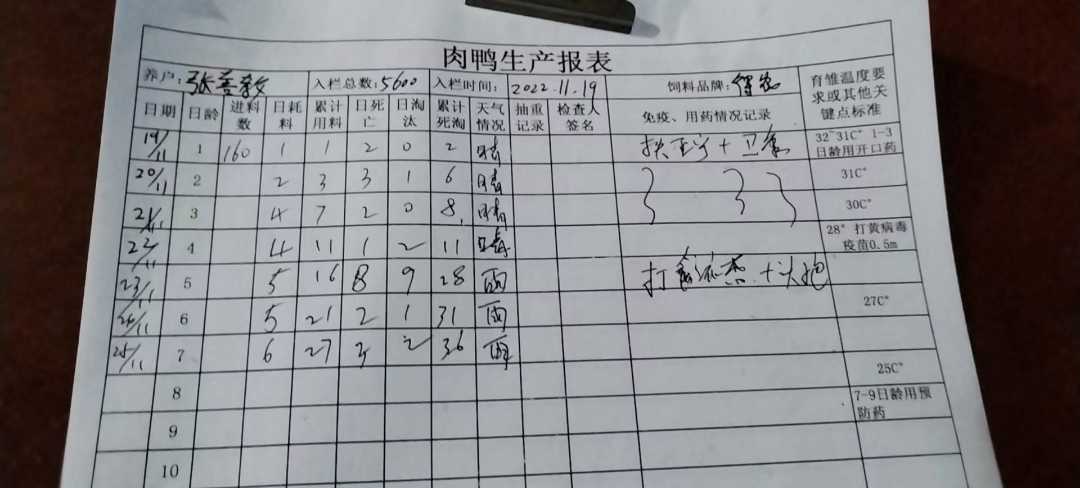 肉鸭生产报表
养户: 入栏总数:5600 入栏时间: 2022.11.19 饲料品牌: 育雏温度要求或其他关键点标准
日期 日龄 进料数 日耗料 累计用料 日死亡 日淘汰 累计死淘 天气情况 抽重记录 检查人签名 免疫、用药情况记录
19/11 1 160 1 1 2 0 2 晴 32~31C° 1-3日龄用开口药
20/11 2 2 3 3 1 6 晴 31C°
21/11 3 4 7 2 0 8 晴 30C°
22/11 4 4 11 1 2 11 晴 28° 打黄病毒疫苗0.5m
23/11 5 5 16 8 9 28 雨
24/11 6 5 21 2 1 31 雨 27C°
25/11 7 6 27 3 2 36
25C°
8 7-9日龄用预防药
9
10